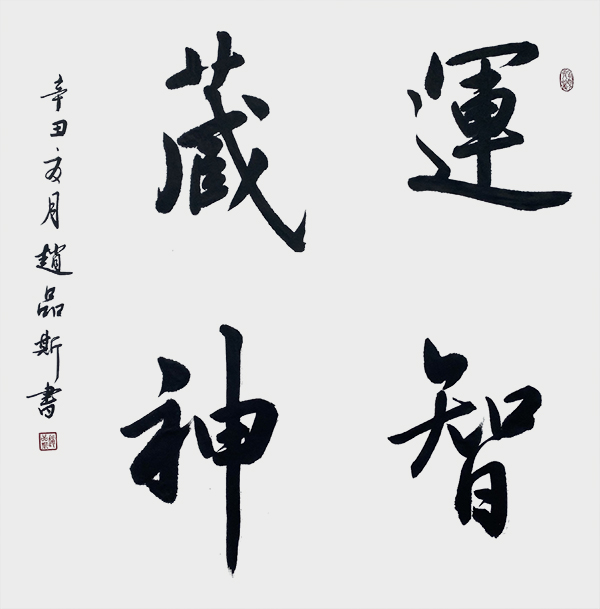 運智
藏神
辛丑月趙品斯書